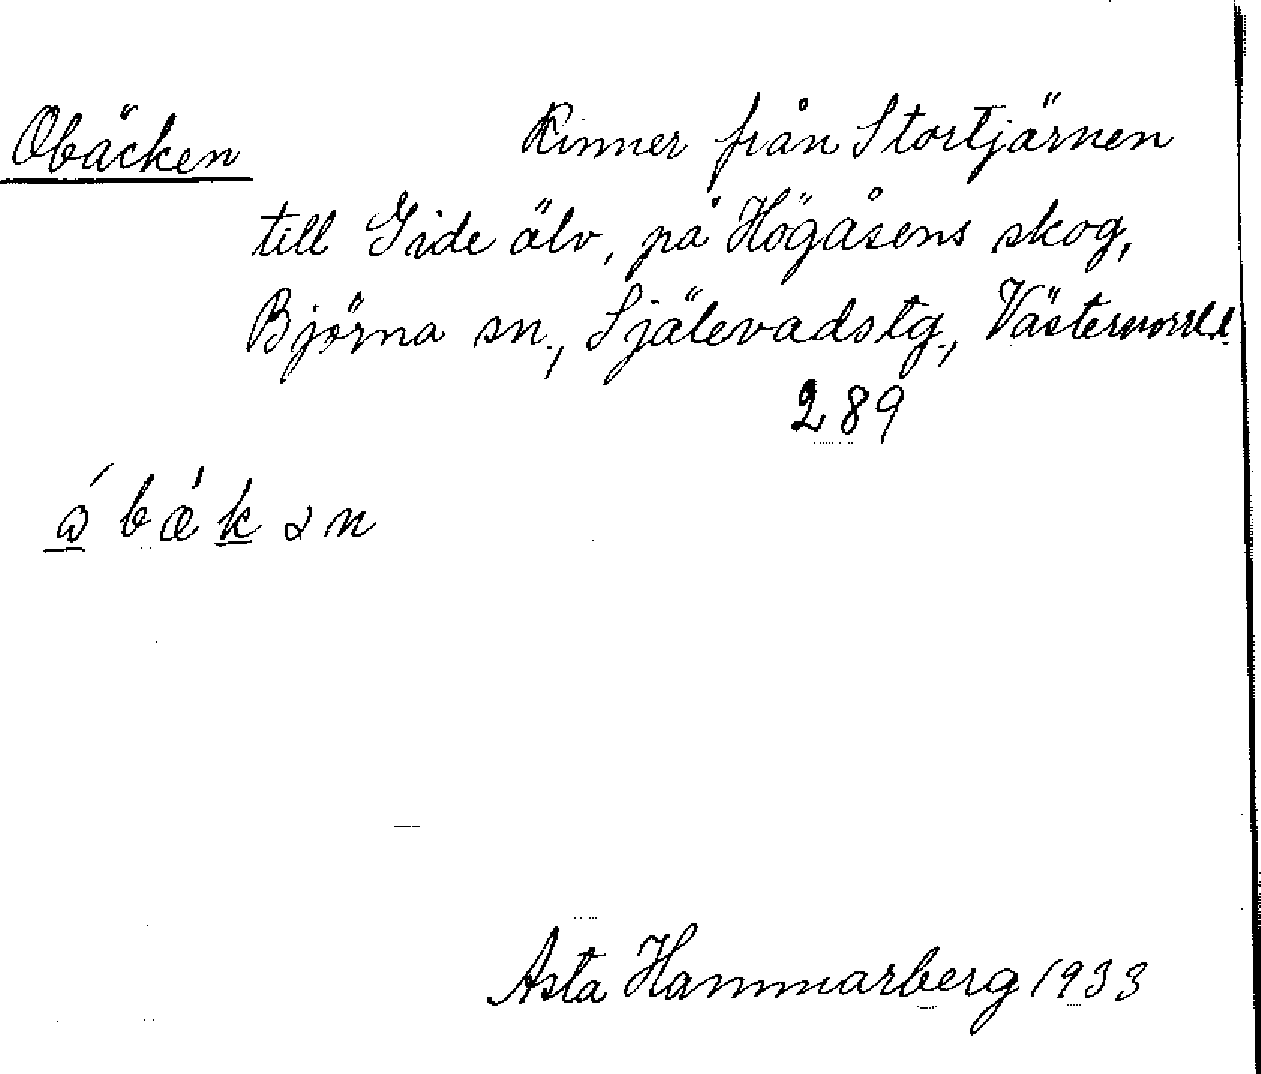 Obäcken Rinner från Stortjärnen
till Gide älv, på Högåsens skog,
Björna sn., Själevadstg., Västernorrl.l.
289
Asta Hammarberg 1933